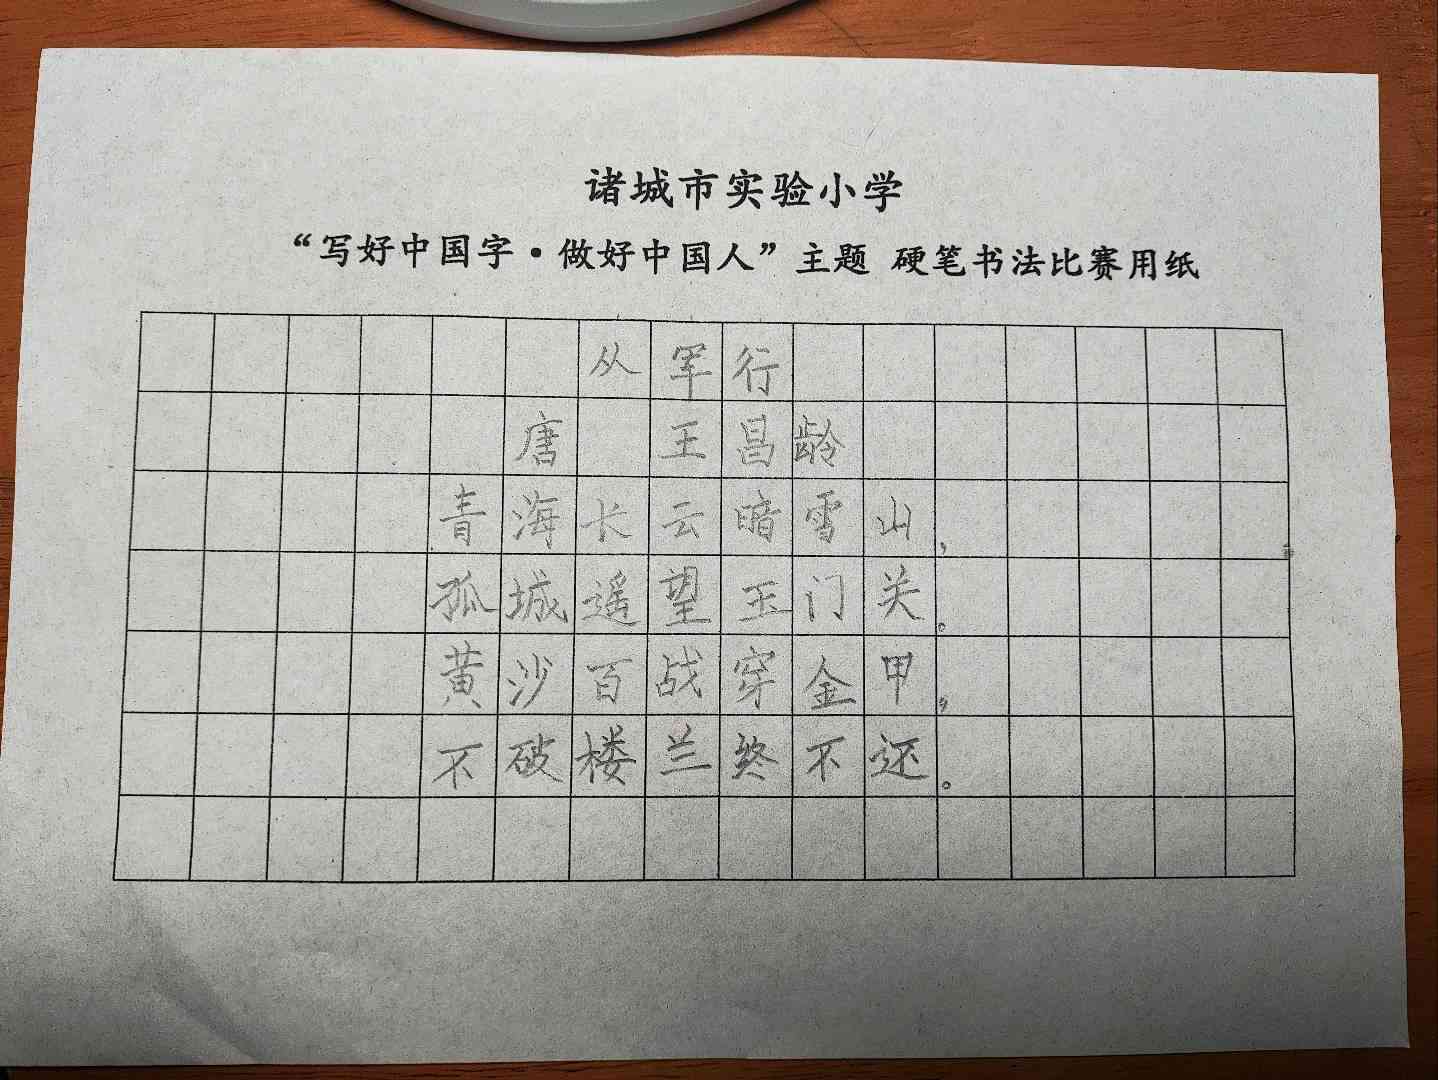 诸城市实验小学
“写好中国字·做好中国人”主题 硬笔书法比赛用纸
从军行
唐 王昌龄
青海长云暗雪山，
孤城遥望玉门关。
黄沙百战穿金甲，
不破楼兰终不还。